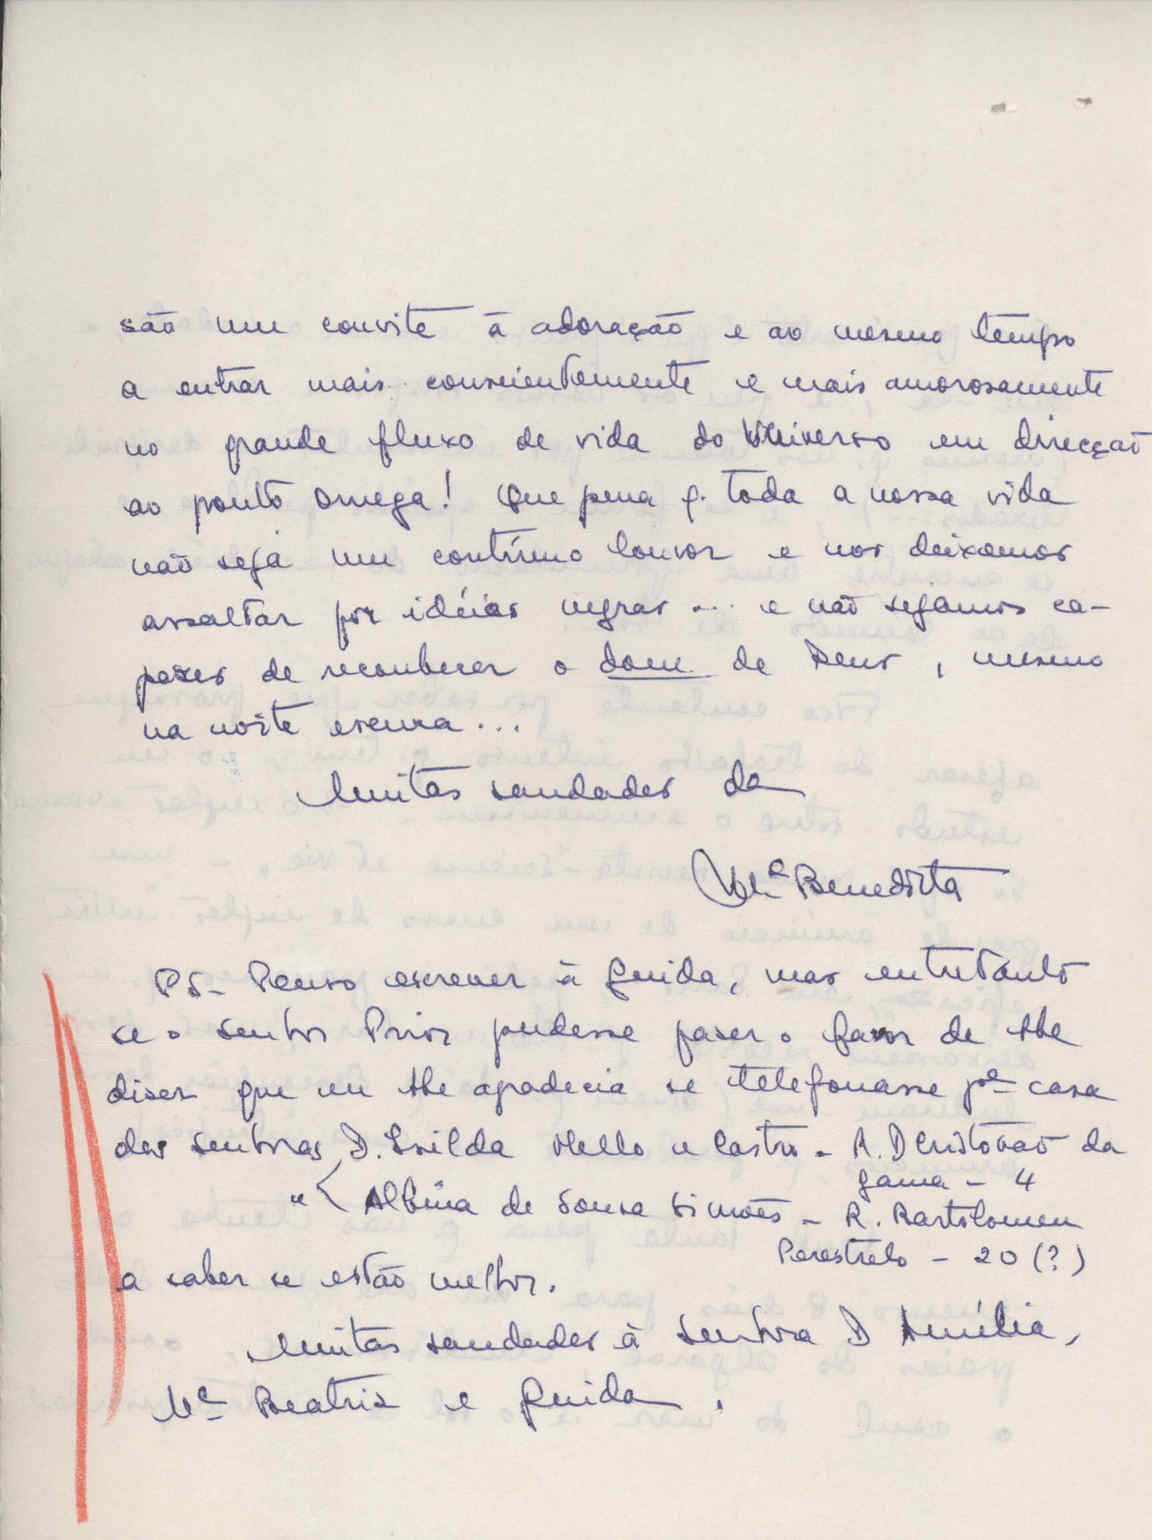 são um convite à adoração e ao mesmo tempo
a entrar mais conscientemente e mais amorosamente
no grande fluxo de vida do Universo em direcção
ao ponto Omega! Que pena q. toda a nossa vida
não seja um contínuo louvor e nos deixamos
assaltar por idéias negras ... e não sejamos ca-
pazes de reconhecer o dom de Deus, mesmo
na noite escura...
Muitas saudades da
Mª Benedicta
PS- Penso escrever à Guida, mas entretanto
se o Senhor Prior pudesse fazer o favor de lhe
dizer que eu lhe agradecia se telefonasse pª casa
das senhoras D. Isilda Mello e Castro - R. D Cristóvão da
Gama - 4
" Albina de Sousa Simões - R. Bartolomeu
Perestrelo - 20 (?)
a saber se estão melhor.
Muitas saudades à Senhora D Amélia,
Mª Beatriz e Guida.